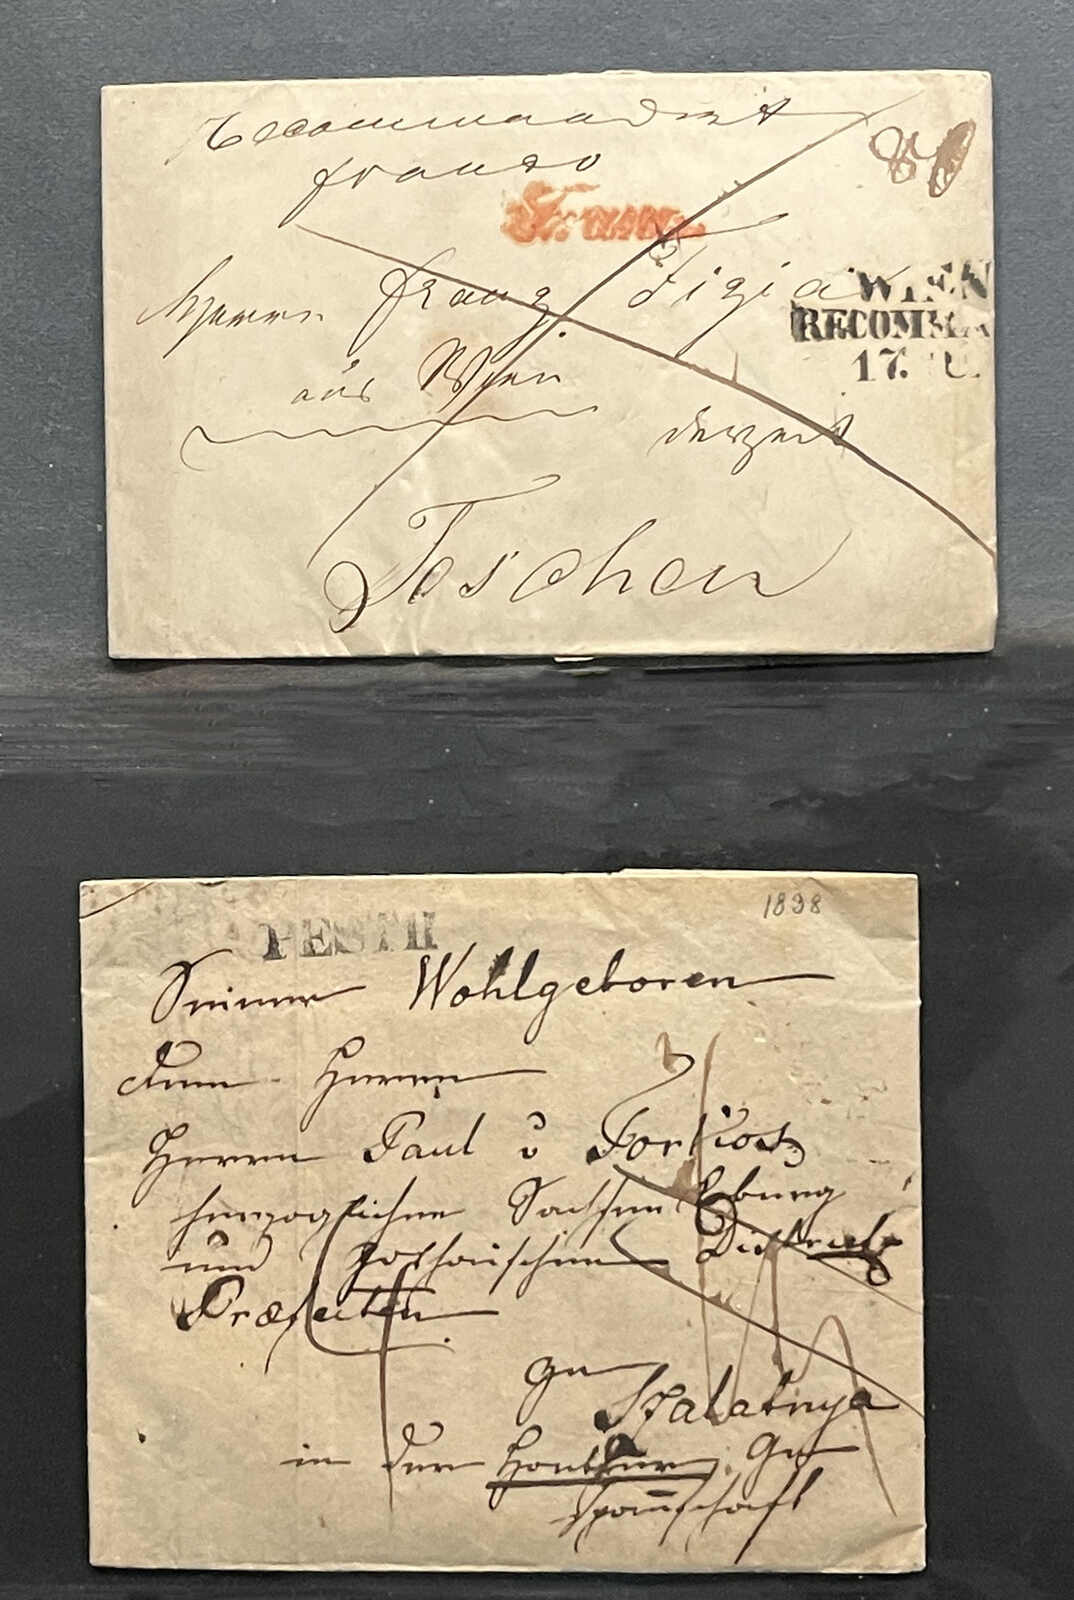 Recommandirt
franco
Franco.
Herrn Franz
WIEN
RECOMMA
17. JU
aus Wien
derzeit
Teschen
1838
PESTH
Seiner Wohlgeboren
dem Herrn
Herrn Paul v
herzoglichen Sachsen Coburg
und Gothaischen Districts
Præfecten
zu
Szalatnya
in der Honther Ge
spannschaft